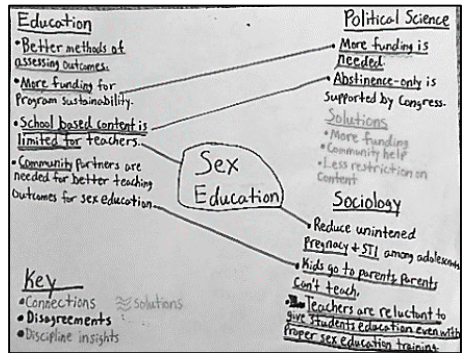 Education
•Better methods of
assessing outcomes.
•More funding for
Program sustainability.
•School based content is
limited for teachers.
•Community Partners are
needed for better teaching
Outcomes for sex education.
Sex
Education
Political Science
•More funding is
needed
•Abstinence-only is
supported by Congress.
Solutions
•More funding
•Community help
•Less restriction on
Content
Sociology
•Reduce unintened
Pregnacy + STI among adolescents
•Kids go to parents parents
can't teach.
•Teachers are reluctant to
give students education even with
Proper sex education training.
Key
•Connections solutions
•Disagreements
•Discipline insights